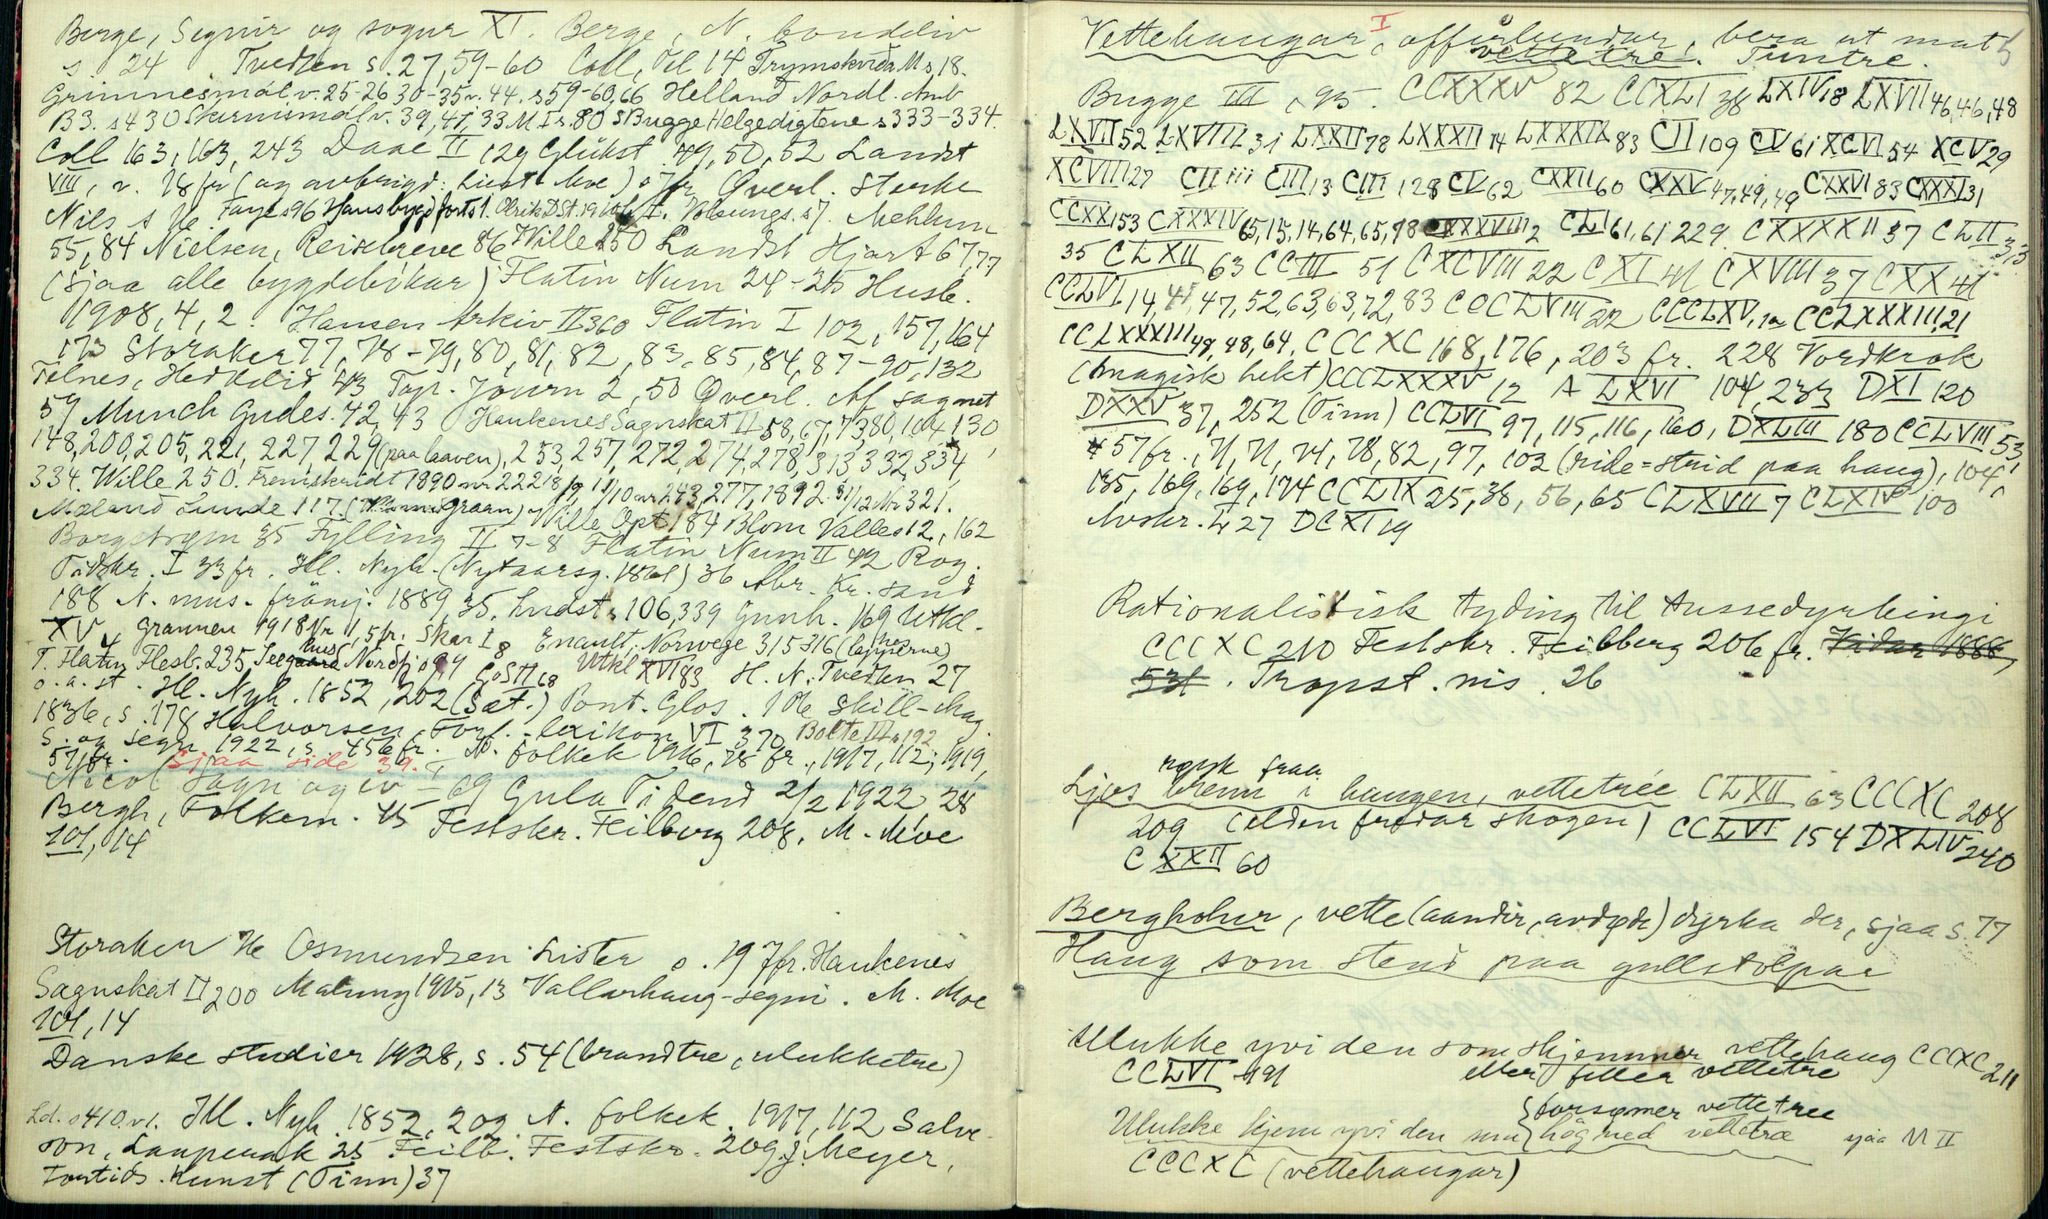 Berge, Segnir og sogur XI. Berge, N. bondeliv
s. 24 Tvedten s. 27, 59-60 Coll, til 14 Trymskvida M s, 18.
Grimnesmál v. 25-26 30-35 v. 44. s 59-60, 66 Helland Nordl. Amt
B3. s 430 Skirnismál v. 39, 41, 33 M I s. 80 S Bugge Helgedigtene s 333-334.
Coll 163, 163, 243 Daae II 129 Glükst. 49, 50, 52 Landst
VIII, v. 18 fr (og avbrigd: Liest. Moe) s 7 fr Qverl. Sterke
Nils s Faye s 96 Hans bygd forts 1. Olrik DSt. 19 I. Volsungs. s 7. Mehlum
55, 84 Nielsen, Reisebreve 86 Wille 250 Landst Hjart 67, 77
(sjaa alle bygdebøkar) Flatin Num 24-25 Husb.
1908, 4, 2. Hansen Arkiv II 360 Flatin I 102, 157, 164
173 Storaker 77, 78-79, 80, 81, 82, 83, 85, 84, 87-90, 132
Telnes, Hedvdis 43 Top. Journ 2, 50 Qverl. Af sagnet
59 Munch Gudes. 42, 43 Haukenes Sagnskat II 58, 67, 73, 80, 104, 130,
148, 200, 205, 221, 227, 229 (paa laaven), 253, 257, 272, 274, 278, 313, 332, 334,
334. Wille 250. Fremskridt 1890 nr 222 18/9, 11/10 nr 243, 277, 1892. 31/12 Nr 321.
Mæland Lunde 117 ( graan) Wille Opt. 184 Blom Valle s 12, 162
35 Fylling II 7-8 Flatin Num II 42 Rog.
Tidskr. I 33 fr. Ill. Nyh. (Nytaarsg. 1861) 36 Abr. Kr. sand
188 N. mus. främj. 1889, 35. Lundst s 106, 339 Gunnh. 169 Utkl.
XV 4 Grannen 1918 Nr 1, 5 fr. Skar I 8 Enault, Norwege 315 316 (lapperne)
T. Flatin Flesb. 235, Nordfj s 94 GoS II 68 Utkl XVI 83 H. N. Tvedten 27
o. a. st. Ill. Nyh. 1852, 202 (Sæt.) Pont. Glos. 106 Skill-Mag.
1836, s. 178 Halvorsen, Forf.-lexikon VI 370 Bolte III s 192
S. og segn 1922, s. 456 fr. N. folkek 1916, 28 fr., 1917, 112; 1919,
57 fr. Sjaa side 39.
Nicol Sagn og ev - 69 Gula Tidend 2/2 1922, 28
Bergh, Folkem. 45 Festskr. Feilberg 208. M. Moe
101, 14
Storaker He Osmundsen Lister s. 19 Jfr. Haukenes
Sagnskat II 200 Malung 1915, 13 Vallarhaug-segni. M. Moe
101, 14
Danske studier 1928, s. 54 (brandtre, ulukketre)
Ld. s 410. v 1. Ill. Nyh. 1852, 202 N. folkek. 1917, 112 Salve
son, Laupenak 25 Feilb. Festskr. 209 J. Meyer,
Fortids. Kunst (Tinn) 37
5
Vettehaugar I, offerlundar, bera ut mat
vettetre. Tuntre.
Bugge III s 95. CCXXXV 82 CCXLI 38 LXIV 18 LXVII 46, 46, 48
LXVII 52 LXVIII 31 LXXII 78 LXXXII 14 LXXXIX 83 CII 109 CV 61 XCVI 54 XCV 29
XCVIII 27 CII 111 CIII 13 CIII 128 CV 62 CXXII 60 CXXV 47, 49, 49 CXXVI 83 CXXXI 31
CCXX 153 CXXXIV 65, 15, 14, 64, 65, 98 CXXXVIII 2 CLI 61, 61 229. CXXXXII 37 CLII 313
35 CLXII 63 CCIII 51 CXCVIII 22 CXI 41 CXVIII 37 CXX 41
CCLVI 14, 45, 47, 52, 63, 63, 72, 83 CCCLVIII 22 CCCLXV, 12 CCLXXXIII, 21
CCLXXXIII 48, 48, 64, CCCXC 168, 176, 203 fr. 228 Vordkrok
(magisk hekt) CCCLXXXV 12 A LXVI 104, 233 DXI 120
DXXV 37, 252 (Tinn) CCLVI 97, 115, 116, 160, DXLIII 180 CCLVIII 53,
57 fr., 71, 71, 74, 78, 82, 97, 102 (ride = strid paa haug), 104,
135, 169, 169, 174 CCLIX 25, 38, 56, 65 CLXVII 7 CLXIV 100
Avskr. L 27 DCXI 19
Rationalistisk tyding til tussedyrkingi
CCCXC 210 Festskr. Feilberg 206 fr. Vidar 1888,
531. Tropst. nis. 26
røyk fraa
Ljos brenn i haugen, vettetrée CLXII 63 CCCXC 208
209 (elden fredar skogen) CCLVI 154 DXLIV 240
CXXII 60
Bergholur, vette (aandir, avdøde) dyrka der, sjaa s. 77
Haug som stend paa gullstolpar
Ulukke yvi den som skjemmer vettehaug CCCXC 211
CCLVI 191 eller feller vettetre
forsømer vettetree
Ulukke kjem yvi den som høg ned vettetræ sjaa M II
CCCXC (vettehaugar)